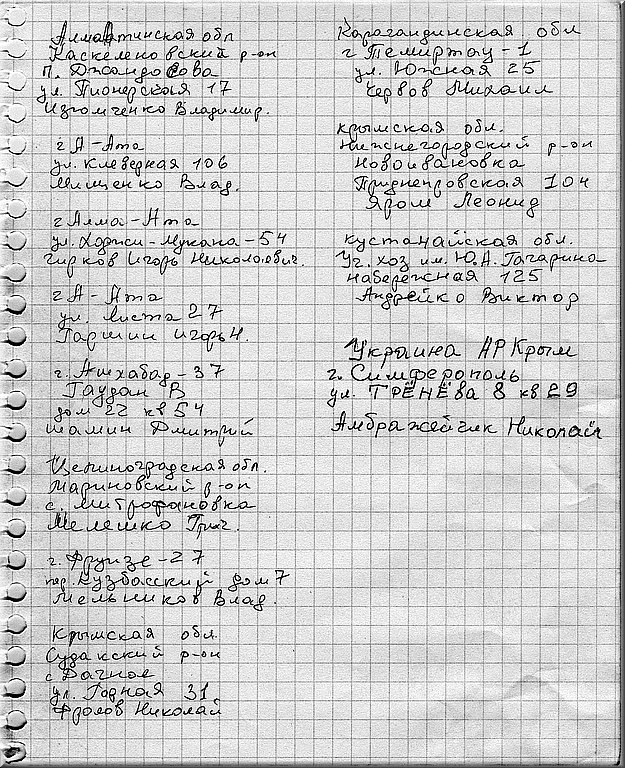 АлмаАтинская обл
Каскеленовский р-он
п. Джандосова
ул. Пионерская 17
Изюмченко Владимир.
г А-Ата
ул. Клеверная 106
Мищенко Влад.
г Алма-Ата
ул. Хаджи-Мукана-54
Чирков Игорь Николаевич.
г А-Ата
ул. Листа 27
Гаршин Игорь Н.
г. Ашхабад-37
Гаудан В
дом 22 кв 54
Шамин Дмитрий
Целиноградская обл.
Мариновский р-он
с. Митрофановка
Мелешко Григ.
г. Фрунзе-27
пер. Кузбасский дом 7
Мельников Влад.
Крымская обл.
Судакский р-он
с Дачное
ул. Садовая 31
Фролов Николай
Карагандинская обл
г Темиртау-1
ул. Южная 25
Червов Михаил
Крымская обл.
Нижнегородский р-он
Новоивановка
Приднепровская 104
Яром Леонид
Кустанайская обл.
Уч. хоз им. Ю.А. Гагарина
Набережная 125
Андрейко Виктор
Украина АР Крым
г. Симферополь
ул. ТРЁНЁва 8 кв 29
Амбражейчик Николай